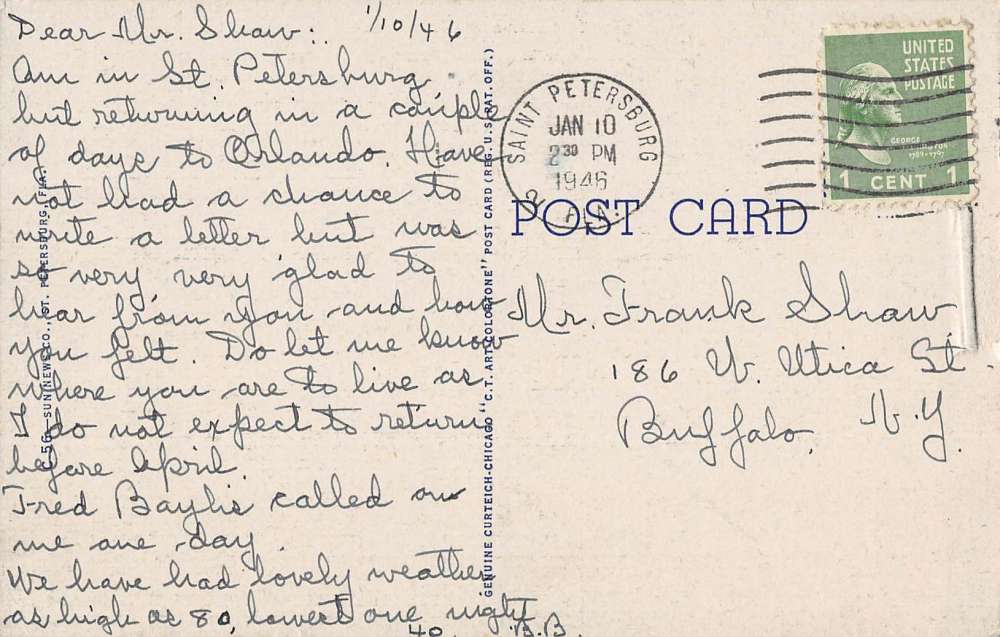 Dear Mr. Shaw:. 1/10/46
Am in St. Petersburg
but returning in a couple
of days to Orlando. Have
not had a chance to
write a letter but was
so very very glad to
hear from you and how
you felt. Do let me know
where you are to live as
I do not expect to return
before April.
Fred Baylis called on
me one day.
We have had lovely weather
as high as 80, lowest one night
40. B.B.
SUN NEWS CO., ST. PETERSBURG, FLA.
GENUINE CURTEICH-CHICAGO "C.T. ART-COLORTONE" POST CARD (REG. U.S. PAT. OFF.)
SAINT PETERSBURG
JAN 10
2 30 PM
1946
FLA.
UNITED
STATES
POSTAGE
GEORGE
WASHINGTON
1789-1797
1 CENT 1
POST CARD
Mr. Frank Shaw
186 W. Utica St.
Buffalo, N.Y.